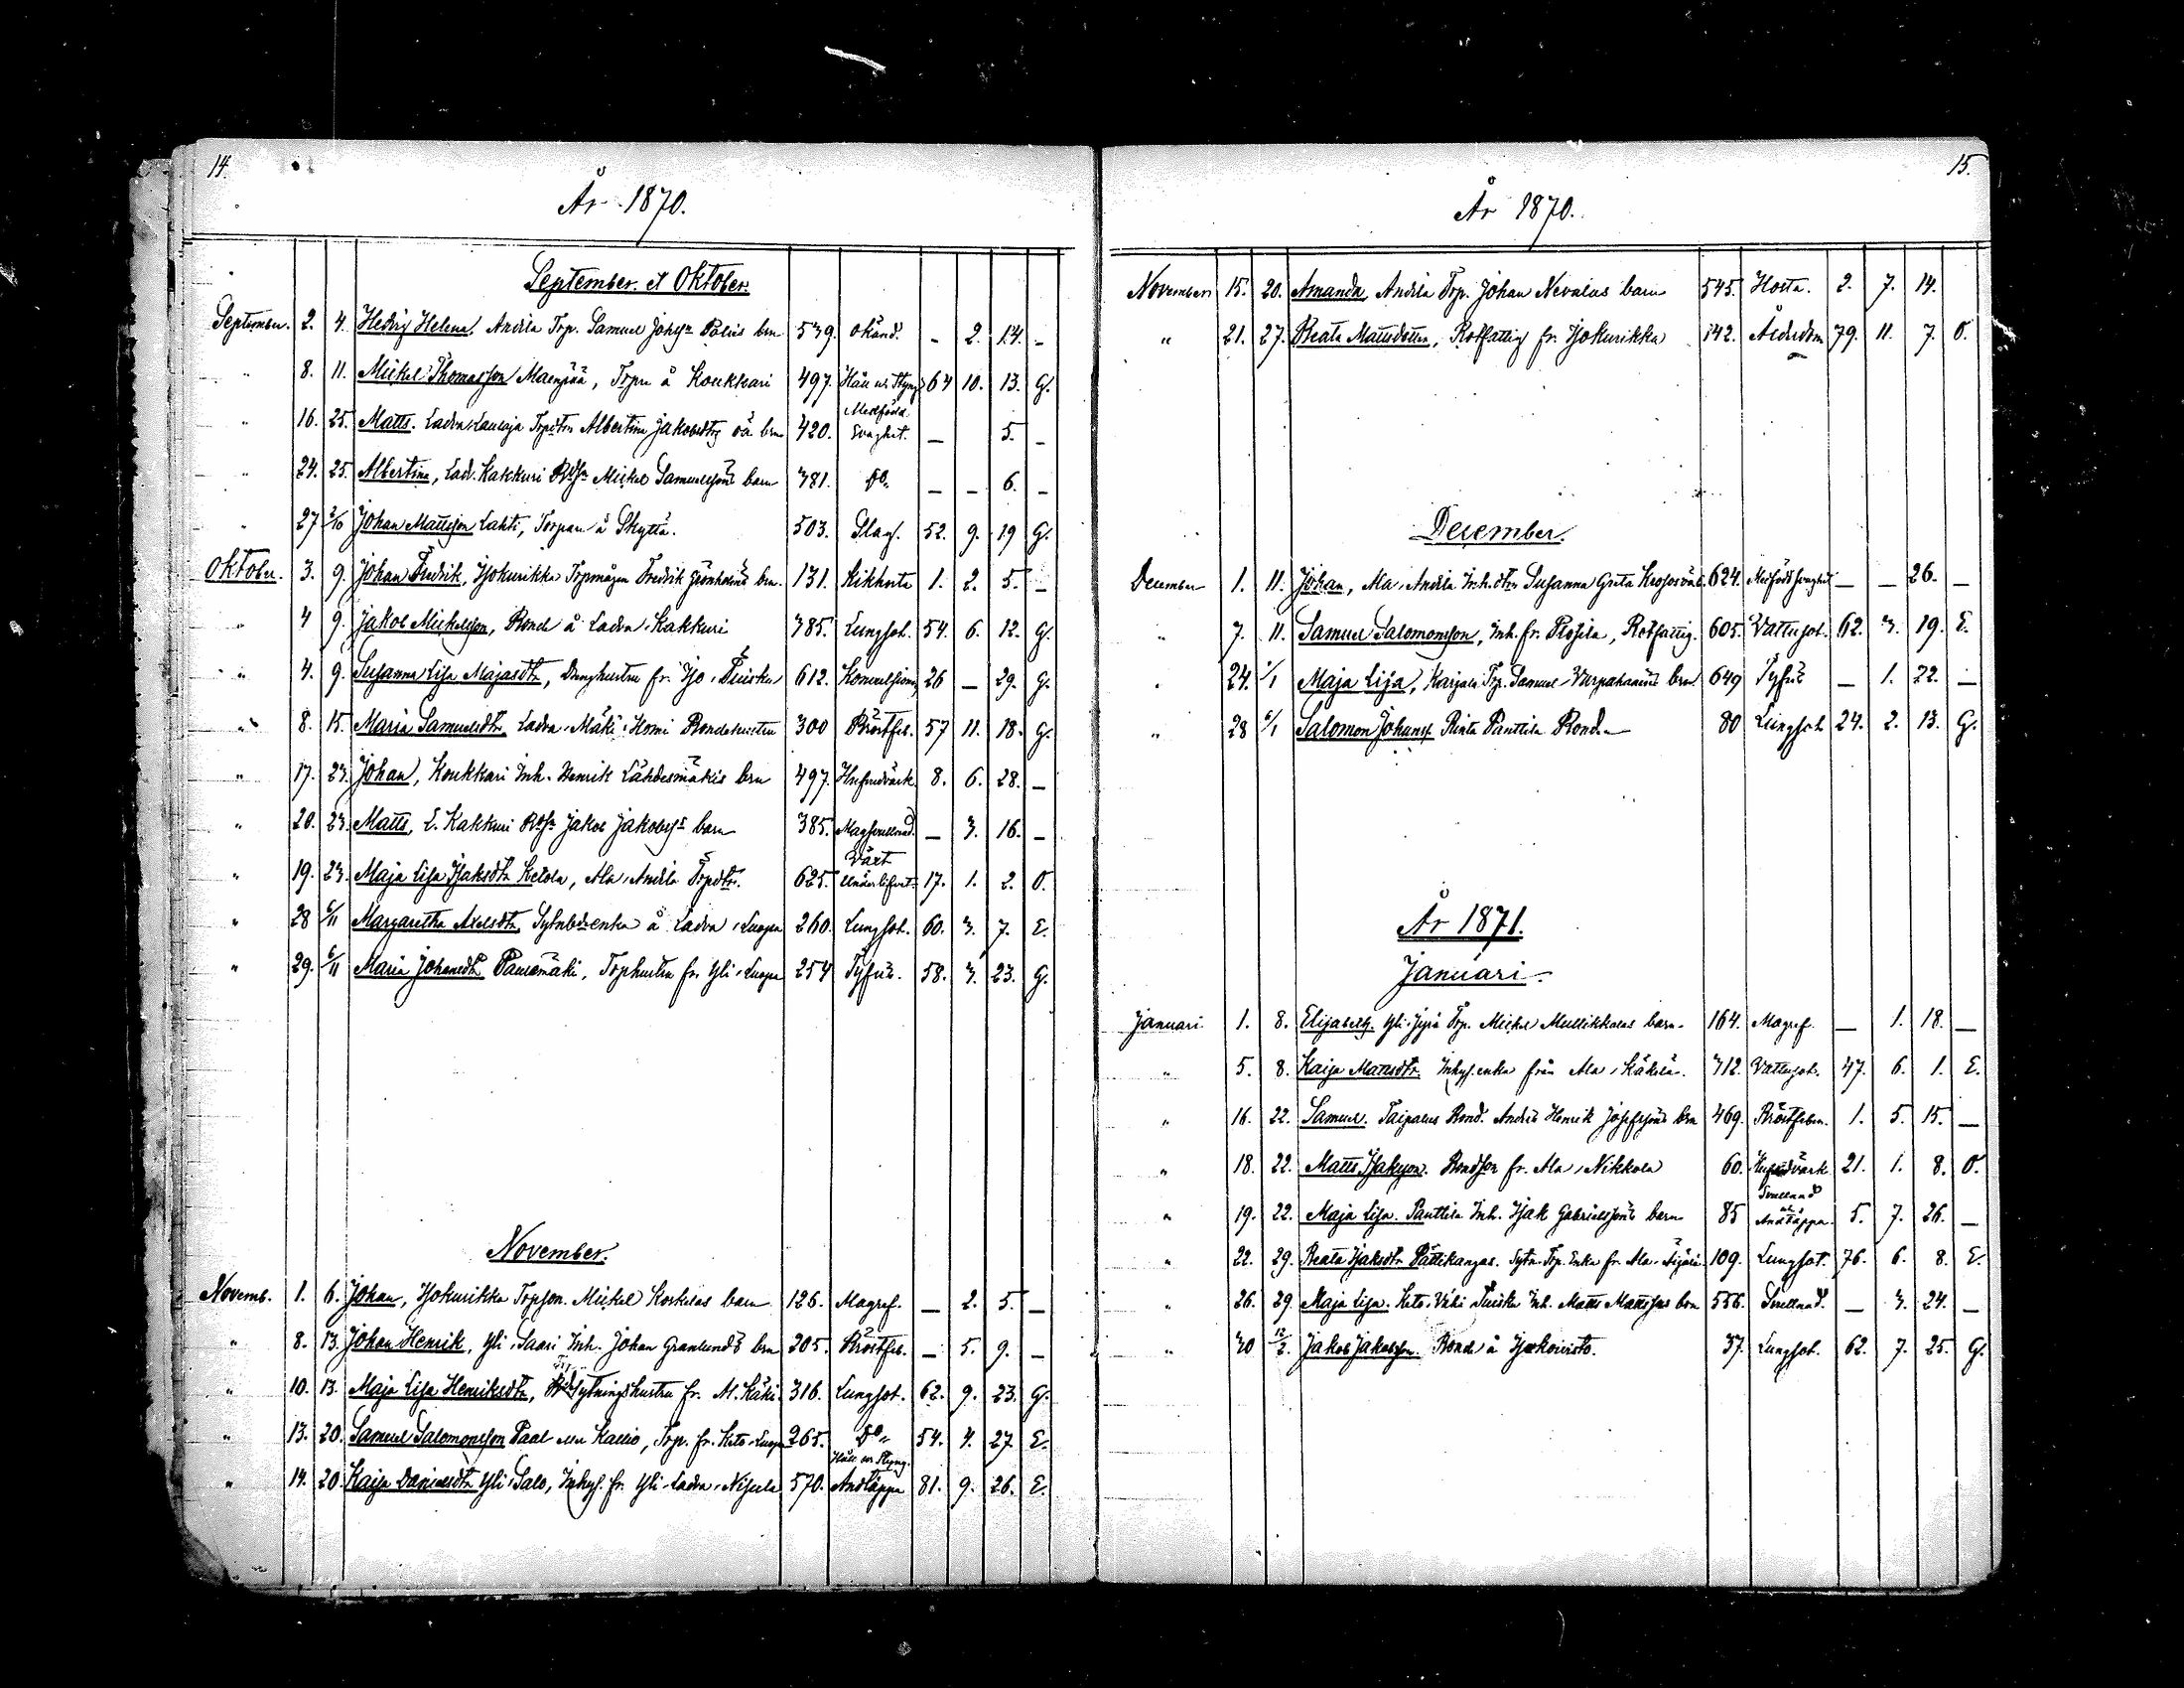 14.
År 1870.
September. et Oktober.
September. 2. 4. Hedvig Helena. Andila Trp. Samuel Johss: Palus brn 539. okänd. - 2. 14. -
" 8. 11. Mickel Thomasson Maenpää, Torpre å Koukkari 497. Håll o. Styng 64 10. 13. G.
" 16. 25. Matts. Ladva Laulaja Trpdtrs Albertina Jakobsdtrs oä brn 420. Medfödd Svaghet. — 5. -
" 24. 25. Albertina, Ladv. Kakkuri Mickel Samuelssons barn 381. Do. — - 6. -
" 27 2/10 Johan Mattsson Lahti, Torpare å Skyttä. 503. Slag. 52. 9. 19 G.
Oktober. 3. 9. Johan Fredrik, Ijokurikka Trpmågen Fredrik brn. 131. Kikhosta 1. 2. 5. -
" 4 9. Jakob Mickelsson, Bonde å Ladva Kakkuri 385. Lungsot. 54. 6. 12. G.
" 4. 9. Susanna Lisa Majasdtr, Drenghustru fr. Tuisku 612. Konvulsioner 26 — 29. G.
" 8. 15. Maria Samuelsdtr Ladva Mäki Komi Bondehustru 300 Bröstfeb. 57 11. 18. G.
" 17. 23. Johan, Koukkari Inh. Henrik Lähdesmäkis brn 497. Hufvudvärk. 8. 6. 28. —
" 20. 23. Matts, L. Kakkuri Jakob Jakobss: barn 385. Magsvullnad. — 3. 16. -
" 19. 23. Maja Lisa Isaksdtr Ketola, Ala Andila Trpdtr. 625. Värk Underlifvet. 17. 1. 2. O.
" 28 6/11 Margaretha Axelsdtr Sytnbdrenka å Ladva Luopa 260. Lungsot. 60. 3. 7. E.
" 29. 6/11 Maria Johansdtr Panamäki, Trphustru fr. Yli Luopa 254 Tyfus. 58. 3. 23. G.
November.
Novemb. 1. 6. Johan, Ijokurikka Trpson Mickel Korkelas barn 126. Magref. — 2. 5. —
" 8. 13. Johan Henrik, Yli Saari Inh. Johan Granlunds brn 205. Bröstfeb. — 5. 9. —
" 10. 13. Maja Lisa Henriksdtr, Sytningshustru fr. Al. Käki. 316. Lungsot. 62. 9. 23. G.
" 13. 20. Samuel Salomonsson Paal eller Kallio, Trp. fr. Keto Luopa 265. Do. 54. 4. 27. E.
" 14. 20. Kaisa Danielsdtr Yli Salo, Inhys. fr. Yli Ladva Nisula 570. Håll o. Styng. Andtäppa 81. 9. 26. E.
15.
År 1870.
November 15. 20. Amanda, Andila Trp. Johan Nevalas barn 545. Hosta. 2. 7. 14.
" 21. 27. Beata Mattsdotter, Rotfattig fr. Ijokurikka 142. Ålderdom 79. 11. 7. O.
December.
December 1. 11. Johan, Ala Andila Inh.dtrs Susanna Greta 624. Medfödd svaghet — — 26. —
" 7. 11. Samuel Salomonsson, Inh. fr. Plosila, Rotfattig. 605. Vattusot. 62. 3. 19. E.
" 24. 1/1 Maja Lisa, Karjala Trp. Samuel brn. 649 Tyfus — 1. 22. —
" 28 6/1 Salomon Johanss. Rinta Panttila Bond. 80 Lungsot 24. 2. 13. G.
År 1871.
Januari.
Januari 1. 8. Elisabeth. Yli Jyrä Trp. Mickel Mullikkalas barn. 164. Magref. — 1. 18. —
" 5. 8. Kaisa Mattsdtr. Inhys.enka från Ala Käkelä. 312. Vattusot. 47. 6. 1. E.
" 16. 22. Samuel. Taipalus Bond. Anders Henrik Josefssons brn 469. Bröstfeber. 1. 5. 15. —
" 18. 22. Matts Isaksson. Bondson fr. Ala Nikkola 60. Hufvudvärk 21. 1. 8. O.
" 19. 22. Maja Lisa. Panttila Inh. Isak Gabrielssons barn 85 Svullnad o. Andtäppa. 5. 7. 26. —
" 22. 29. Beata Isaksdtr Pättikangas. Sytn. Trp. Enka fr. Ala Äijälä 109. Lungsot. 76. 6. 8. E.
" 26. 29. Maja Lisa. Keto Tuisku Inh. Matts Mattssons brn 556. Svullnad. — 3. 24. —
" 30 12/2. Jakob Jakobsson. Bonde å Iskoivisto. 37. Lungsot. 62. 7. 25. G.